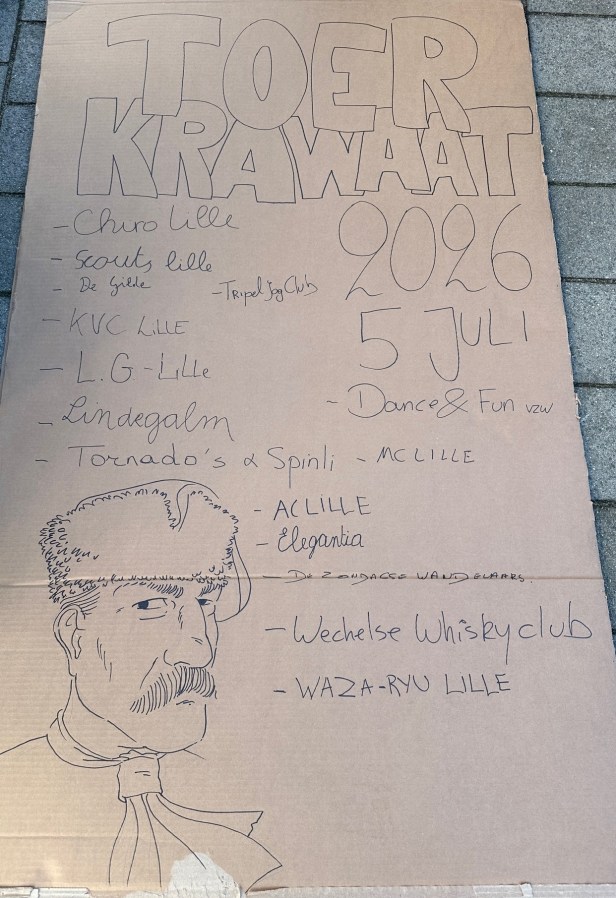 TOER
KRAWAAT
2026
5 JULI
- Chiro Lille
- Scouts Lille
- De Gilde
- Tripel Jog Club
- KVC LILLE
- L.G - Lille
- Dance & Fun vzw
- Lindegalm
- Tornado's & Spinli - MC LILLE
- ACLILLE
- Elegantia
- DE ZONDAGSE WANDELAARS.
- Wechelse Whiskyclub
- WAZA-RYU LILLE